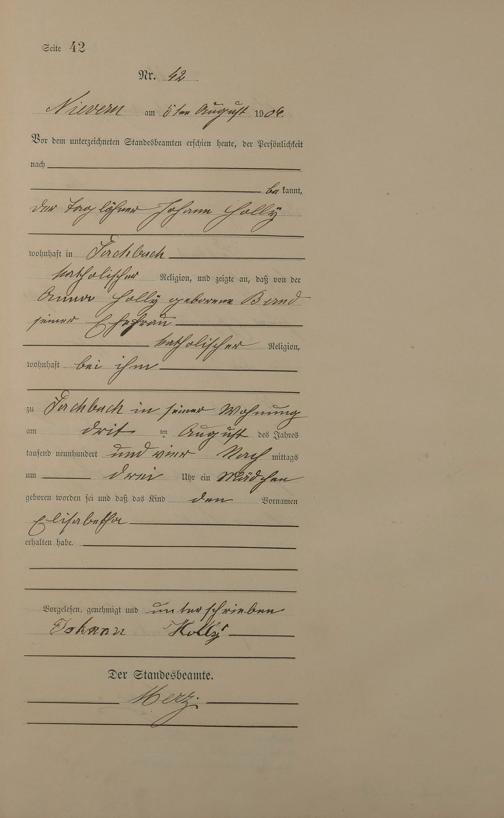 Seite 42
Nr. 42
Nievern am 5ten August 1904
Vor dem unterzeichneten Standesbeamten erschien heute, der Persönlichkeit
nach
be kannt,
der Taglöhner Johann Holly
wohnhaft in Fachbach
katholischer Religion, und zeigte an, daß von der
Anna Holly geborene Band
seiner Ehefrau
katholischer Religion,
wohnhaft bei ihm
zu Fachbach in seiner Wohnung
am drit ten August des Jahres
tausend neunhundert und vier Nach mittags
um drei Uhr ein Mädchen
geboren worden sei und daß das Kind den Vornamen
Elisabetha
erhalten habe.
Vorgelesen, genehmigt und unterschrieben
Johann Holly
Der Standesbeamte.
Merz.